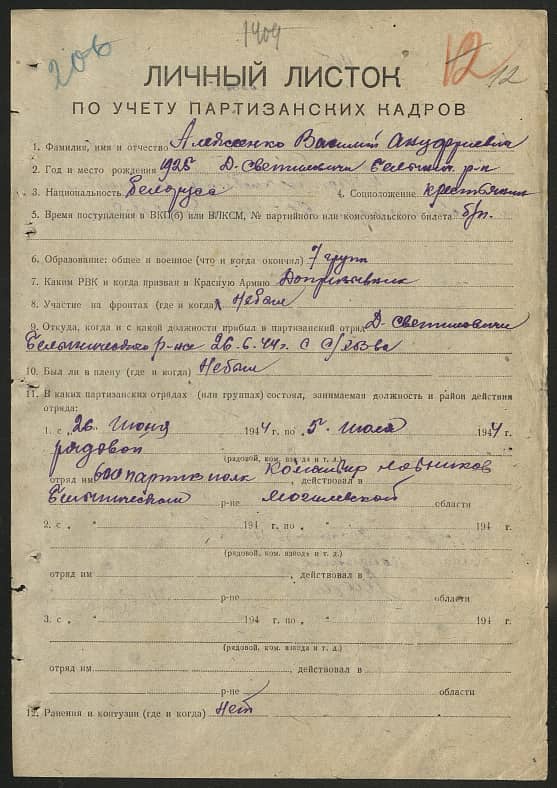 1404
206
12 12
ЛИЧНЫЙ ЛИСТОК
ПО УЧЕТУ ПАРТИЗАНСКИХ КАДРОВ
1. Фамилия, имя и отчество Алексеенко Василий Ануфриевич
2. Год и место рождения 1925 Д. Светиловичи Белынич. р-н
3. Национальность Белоруса 4. Соцположение крестьянин
5. Время поступления в ВКП(б) или ВЛКСМ, № партийного или комсомольского билета б/п.
6. Образование: общее и военное (что и когда окончил) 7 групп
7. Каким РВК и когда призван в Красную Армию Допризывник
8. Участие на фронтах (где и когда) Не был
9. Откуда, когда и с какой должности прибыл в партизанский отряд Д. Светиловичи
Белыничского р-на 26.6.44г. с
10. Был ли в плену (где и когда) Не был
11. В каких партизанских отрядах (или группах) состоял, занимаемая должность и район действия
отряда:
1. с „ 26 Июня 1944 г. по „ 5 " Июля 1944 г.
рядовой
(рядовой, ком. взвода и т. д.)
отряд им 600 парт. полк Командир Новиков, действовал в
Белыническом р-не Могилевской области
2. с „ " 194 г. по „ " 194 г.
(рядовой, ком. взвода и т. д.)
отряд им , действовал в
р-не области
3. с „ " 194 г. по „ " 194 г.
(рядовой, ком. взвода и т. д.)
отряд им , действовал в
р-не области
12. Ранения и контузии (где и когда) Нет